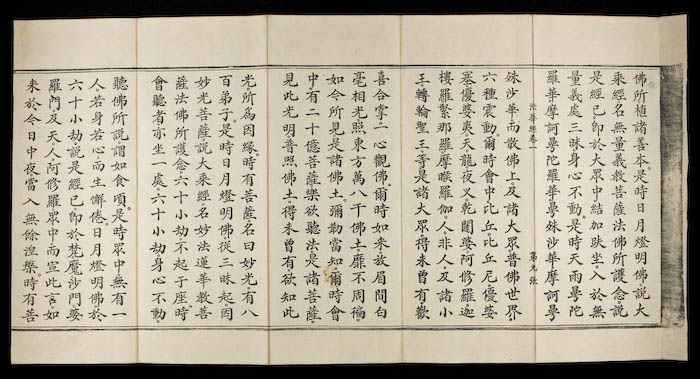 佛所植諸善本是時日月燈明佛說大
乘經名無量義教菩薩法佛所護念說
是經已即於大眾中結加趺坐入於無
量義處三昧身心不動是時天雨曼陀
羅華摩訶曼陀羅華曼殊沙華摩訶曼
法華經卷一 第九張
殊沙華而散佛上及諸大眾普佛世界
六種震動爾時會中比丘比丘尼優婆
塞優婆夷天龍夜叉乾闥婆阿修羅迦
樓羅緊那羅摩睺羅伽人非人及諸小
王轉輪聖王等是諸大眾得未曾有歡
喜合掌一心觀佛爾時如來放眉間白
毫相光照東方萬八千佛土靡不周徧
如今所見是諸佛土彌勒當知爾時會
中有二十億菩薩樂欲聽法是諸菩薩
見此光明普照佛土得未曾有欲知此
光所為因緣時有菩薩名曰妙光有八
百弟子是時日月燈明佛從三昧起因
妙光菩薩說大乘經名妙法蓮華教菩
薩法佛所護念六十小劫不起于座時
會聽者亦坐一處六十小劫身心不動
聽佛所說謂如食頃是時眾中無有一
人若身若心而生懈倦日月燈明佛於
六十小劫說是經已即於梵魔沙門婆
羅門及天人阿修羅眾中而宣此言如
來於今日中夜當入無餘涅槃時有菩